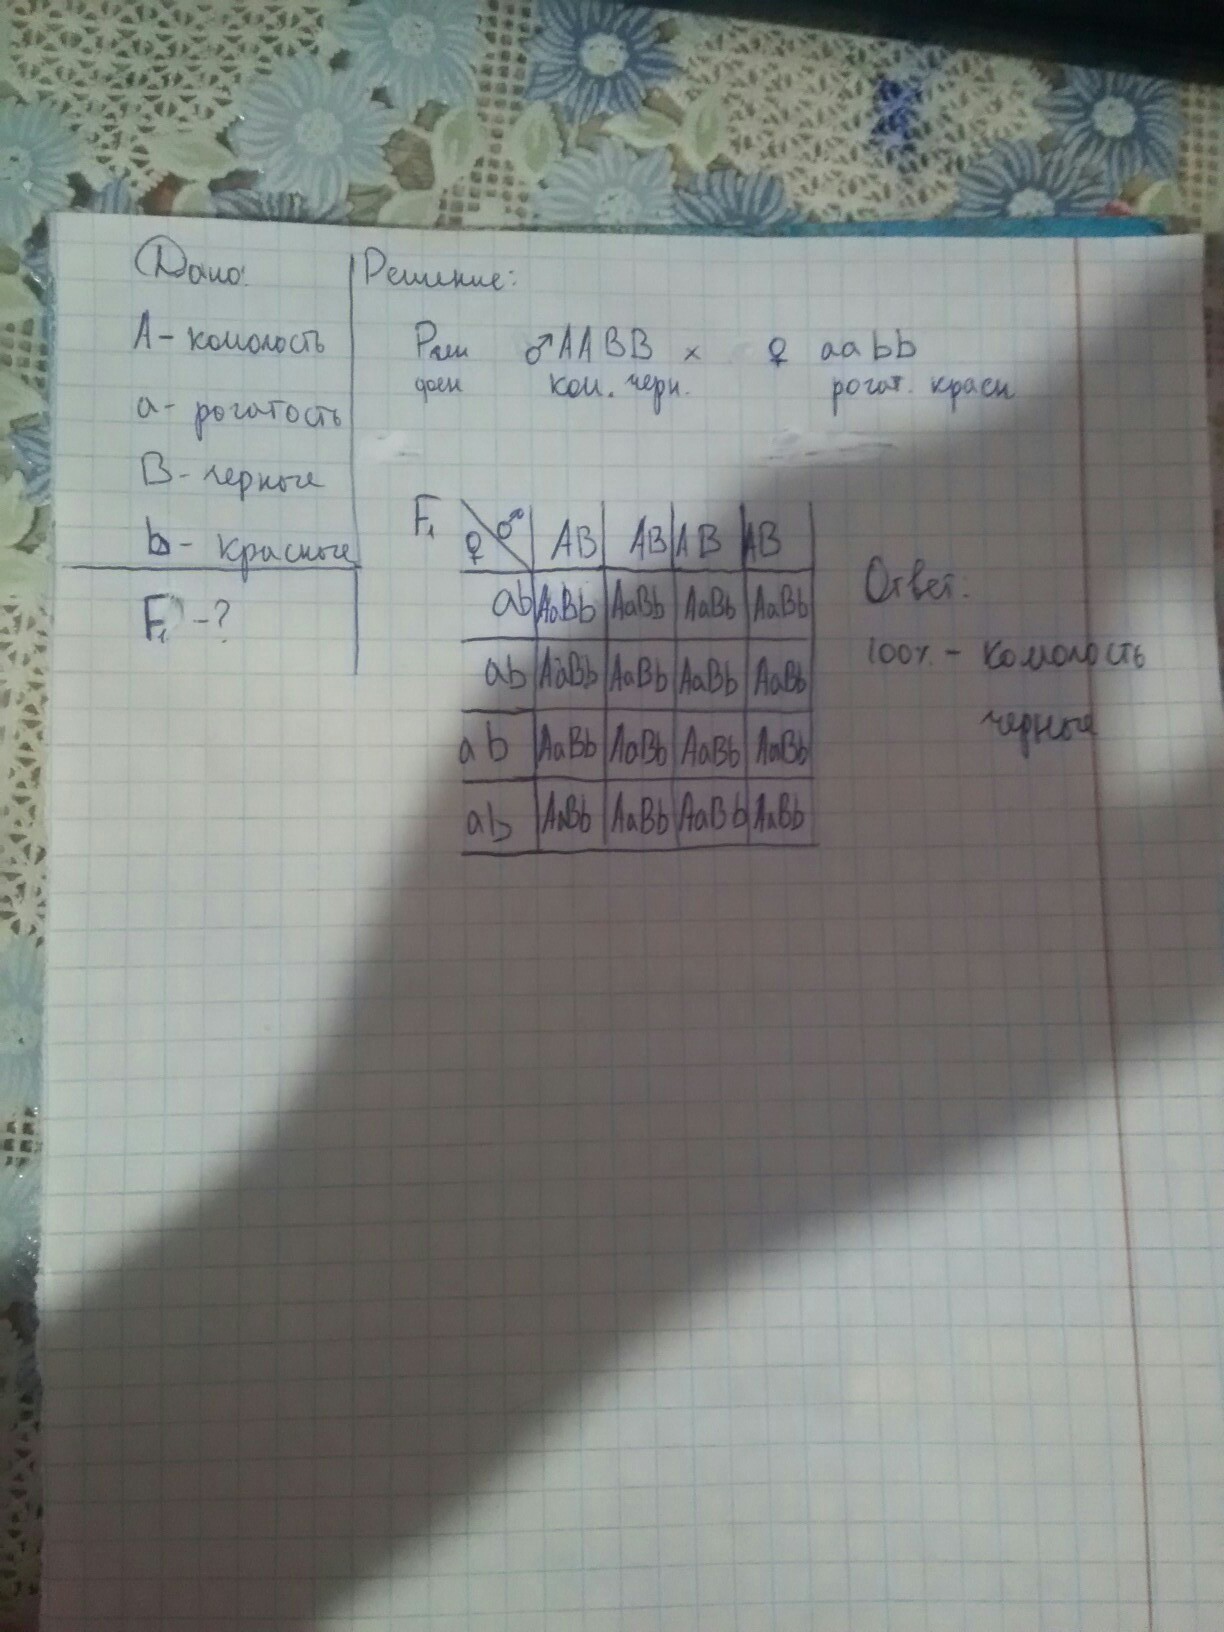 Дано:
А- комолость
а- рогатость
В- черные
b- красные
F₁ -?
Решение:
Pген ♂ААВВ × ♀ ааbb
фен ком. черн. рогат. красн
F₁ ♀ ♂ АВ АВ АВ АВ
ab AaBb AaBb AaBb AaBb
ab AaBb AaBb AaBb AaBb
ab AaBb AaBb AaBb AaBb
ab AaBb AaBb AaBb AaBb
Ответ:
100% - комолость
черные